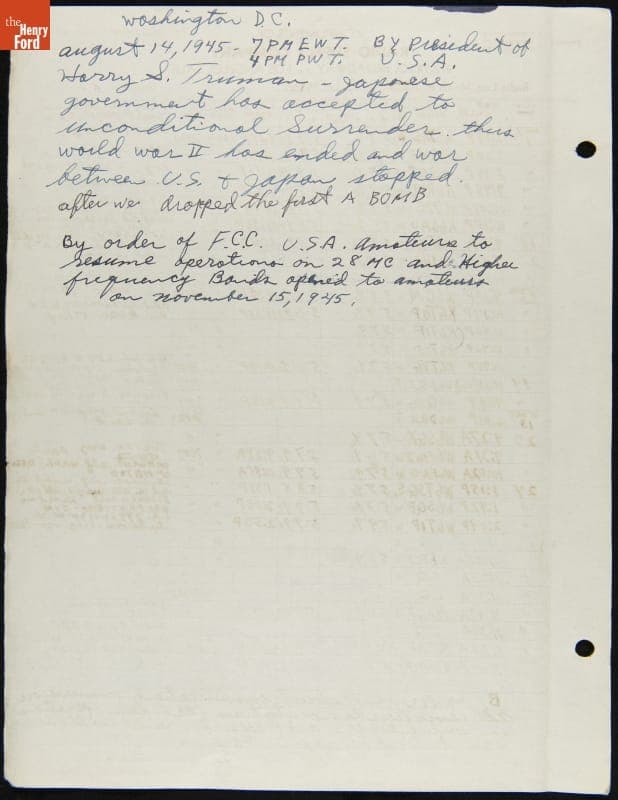 the
Henry
Ford
Washington D.C.
august 14, 1945 - 7 PM E W T. By President of
4 PM P W T. U. S. A.
Harry S. Truman - Japanese
government has accepted to
unconditional Surrender. thus
world war II has ended and war
between U.S. + Japan stopped.
after we dropped the first A BOMB
By order of F.C.C. U.S.A. amateurs to
resume operations on 28 MC and Higher
frequency Bands opened to amateurs
on november 15, 1945.